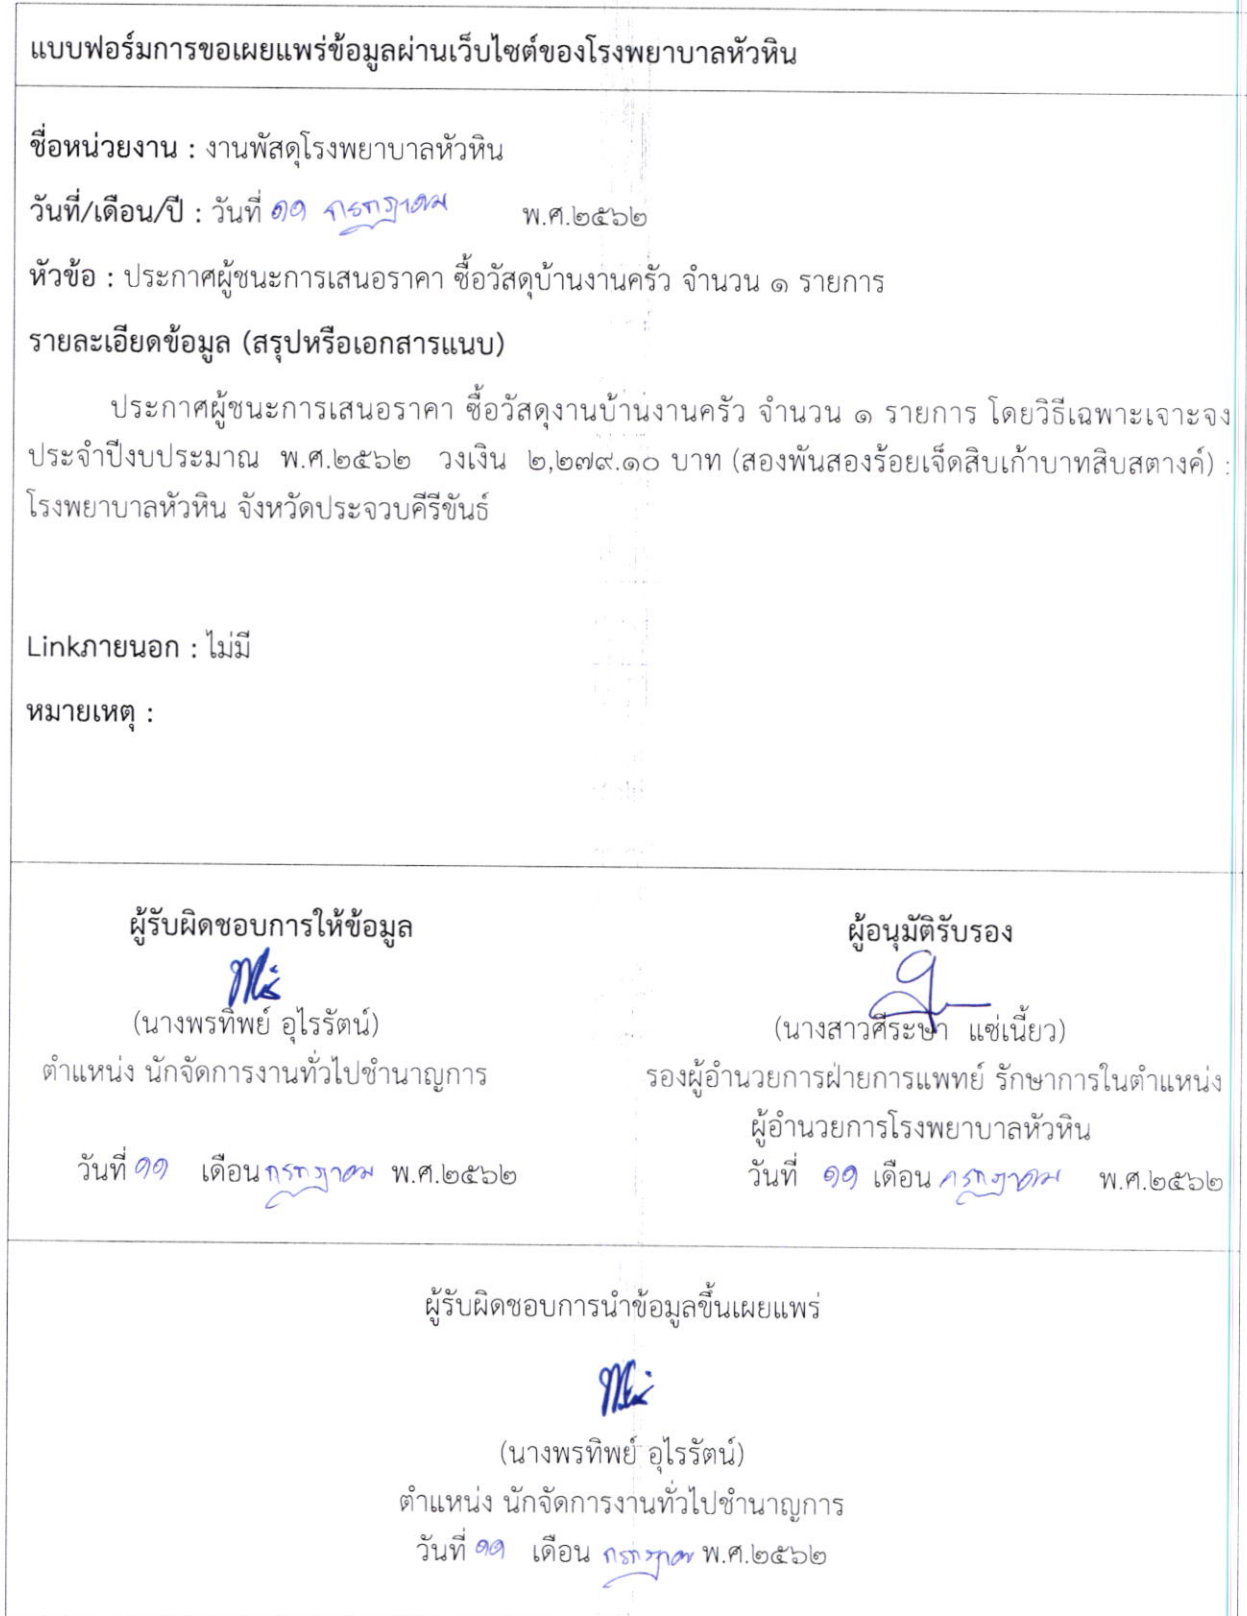 แบบฟอร์มการขอเผยแพร่ข้อมูลผ่านเว็บไซต์ของโรงพยาบาลหัวหิน
ชื่อหน่วยงาน : งานพัสดุโรงพยาบาลหัวหิน
วันที่/เดือน/ปี : วันที่ ๑๑ กรกฎาคม พ.ศ.๒๕๖๒
หัวข้อ : ประกาศผู้ชนะการเสนอราคา ซื้อวัสดุบ้านงานครัว จำนวน ๑ รายการ
รายละเอียดข้อมูล (สรุปหรือเอกสารแนบ)
ประกาศผู้ชนะการเสนอราคา ซื้อวัสดุงานบ้านงานครัว จำนวน ๑ รายการ โดยวิธีเฉพาะเจาะจง
ประจำปีงบประมาณ พ.ศ.๒๕๖๒ วงเงิน ๒,๒๗๙.๑๐ บาท (สองพันสองร้อยเจ็ดสิบเก้าบาทสิบสตางค์) :
โรงพยาบาลหัวหิน จังหวัดประจวบคีรีขันธ์
Linkภายนอก : ไม่มี
หมายเหตุ :
ผู้รับผิดชอบการให้ข้อมูล
(นางพรทิพย์ อุไรรัตน์)
ตำแหน่ง นักจัดการงานทั่วไปชำนาญการ
วันที่ ๑๑ เดือน กรกฎาคม พ.ศ.๒๕๖๒
ผู้อนุมัติรับรอง
(นางสาวศีระษา แซ่เนี้ยว)
รองผู้อำนวยการฝ่ายการแพทย์ รักษาการในตำแหน่ง
ผู้อำนวยการโรงพยาบาลหัวหิน
วันที่ ๑๑ เดือน กรกฎาคม พ.ศ.๒๕๖๒
ผู้รับผิดชอบการนำข้อมูลขึ้นเผยแพร่
(นางพรทิพย์ อุไรรัตน์)
ตำแหน่ง นักจัดการงานทั่วไปชำนาญการ
วันที่ ๑๑ เดือน กรกฎาคม พ.ศ.๒๕๖๒